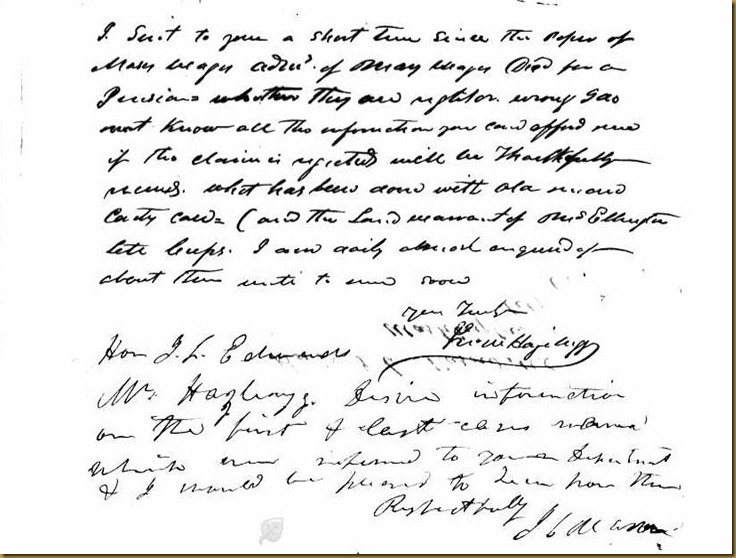 I Sent to you a short time since the Papers of
Mary Wages adms. of Wages Decd for a
Pension whether they are right or wrong I do
not Know all the information you can afford me
if the claim is rejected will be Thankfully
received. what has been done with old
case (and the Land warrant of
late . I am daily almost enquired of
about them write to me soon
your
Hon J. L. Edwards
Mr. Desires information
on the first & last cases named
which were referred to your Department
& I would be pleased to hear from them
Respectfully
J C Mason